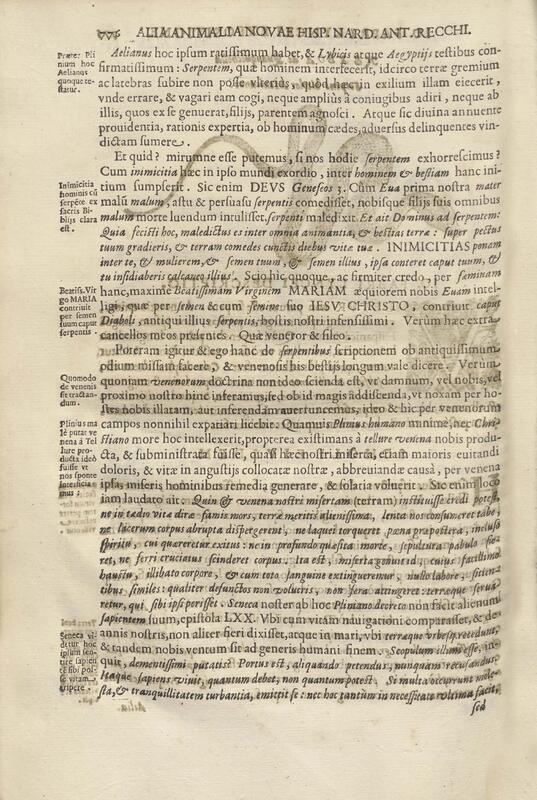 776 ALIA ANIMALIA NOVAE HISP. NARD. ANT. RECCHI.
Præter Plinium hoc Aelianus quoque testatur.
Aelianus hoc ipsum ratissimum habet, & Lybicis atque Aegyptijs testibus con-
firmatissimum: Serpentem, quæ hominem interfecerit, idcirco terræ gremium
ac latebras subire non posse vlterius, quòd hæc in exilium illam eiecerit,
vnde errare, & vagari eam cogi, neque ampliùs à coniugibus adiri, neque ab
illis, quos ex se genuerat, filijs, parentem agnosci. Atque sic diuina annuente
prouidentia, rationis expertia, ob hominum cædes, aduersus delinquentes vin-
dictam sumere.
Et quid? mirumne esse putemus, si nos hodie serpentem exhorrescimus?
Inimicitia hominis cũ serpẽte ex sacris Biblijs clara est.
Cum inimicitia hæc in ipso mundi exordio, inter hominem & bestiam hanc ini-
tium sumpserit. Sic enim DEVS Geneseos 3. Cùm Eua prima nostra mater
malũ malum, astu & persuasu serpentis comedisset, nobisque filijs suis omnibus
malum morte luendum intulisset, serpenti maledixit. Et ait Dominus ad serpentem:
Quia fecisti hoc, maledictus es inter omnia animantia, & bestias terræ: super pectus
tuum gradieris, & terram comedes cunctis diebus vitæ tuæ. INIMICITIAS ponam
inter te, & mulierem, & semen tuum, & semen illius, ipsa conteret caput tuum, &
tu insidiaberis calcaneo illius. Scio hic quoque, ac firmiter credo, per fæminam
Beatiss. Virgo MARIA contriuit per semen suum caput serpentis.
hanc, maximè Beatissimam Virginem MARIAM æquiorem nobis Euam intel-
ligi, quæ per semen & cum semine suo IESV CHRISTO, contriuit caput
Diaboli, antiqui illius serpentis, hostis nostri infensissimi. Verùm hæc extra
cancellos meos præsentes. Quæ veneror & sileo.
Poteram igitur & ego hanc de serpentibus scriptionem ob antiquissimum
odium missam facere, & venenosis his bestijs longum vale dicere. Verùm
Quomodo de venenis sit tractandum.
quoniam venenorum doctrina non ideo scienda est, vt damnum, vel nobis, vel
proximo nostro hinc inferamus, sed ob id magis addiscenda, vt noxam per ho-
stes nobis illatam, aut inferendam auertuncemus, ideo & hic per venenorum
Plinius malè putat venena à Tellure producta ideo fuisse vt nos sponte interficiamus
campos nonnihil expatiari licebit. Quamuis Plinius humano minimè, nec Chri-
stiano more hoc intellexerit, propterea existimans à tellure venena nobis produ-
cta, & subministrata fuisse, quasi hæc nostri miserta, etiam maioris euitandi
doloris, & vitæ in angustijs collocatæ nostræ, abbreuiandæ causa, per venena
ipsa, miseris hominibus remedia generare, & solatia voluerit. Sic enim loco
iam laudato ait. Quin & venena nostri misertam (terram) instituisse credi potest,
ne in tædio vitæ diræ famis mors, terræ meritis alienissima, lenta nos consumeret tabe,
ne lacerum corpus abrupta dispergerent, ne laquei torqueret pœna præpostera, incluso
spiritu, cui quæreretur exitus: ne in profundo quæsita morte, sepultura pabulo fie-
ret, ne ferri cruciatus scinderet corpus. Ita est, miserta genuit id, cuius facillimo
haustu, illibato corpore, & cum toto sanguine extingueremur, nullo labore, sitien-
tibus similes: qualiter defunctos non volucris, non fera attingeret: terræque serua
retur, qui sibi ipsi perisset. Seneca noster ab hoc Pliniano decreto non facit alienum
sapientem suum, epistola LXX. Vbi cum vitam nauigationi comparasset, & de
annis nostris, non aliter fieri dixisset, atque in mari, vbi terræque vrbesque recedunt,
Seneca videtur hoc ipsum sentire sapiente sibi posse vitam eripere.
& tandem nobis ventum sit ad generis humani finem. Scopulum illum esse, in-
quit, dementissimi putatis? Portus est, aliquando petendus, nunquam recusandus.
Itaque sapiens viuit, quantum debet, non quantum potest. Si multa occurrunt mole-
sta, & tranquillitatem turbantia, emittit se: nec hoc tantùm in necessitate vltima facit,
sed